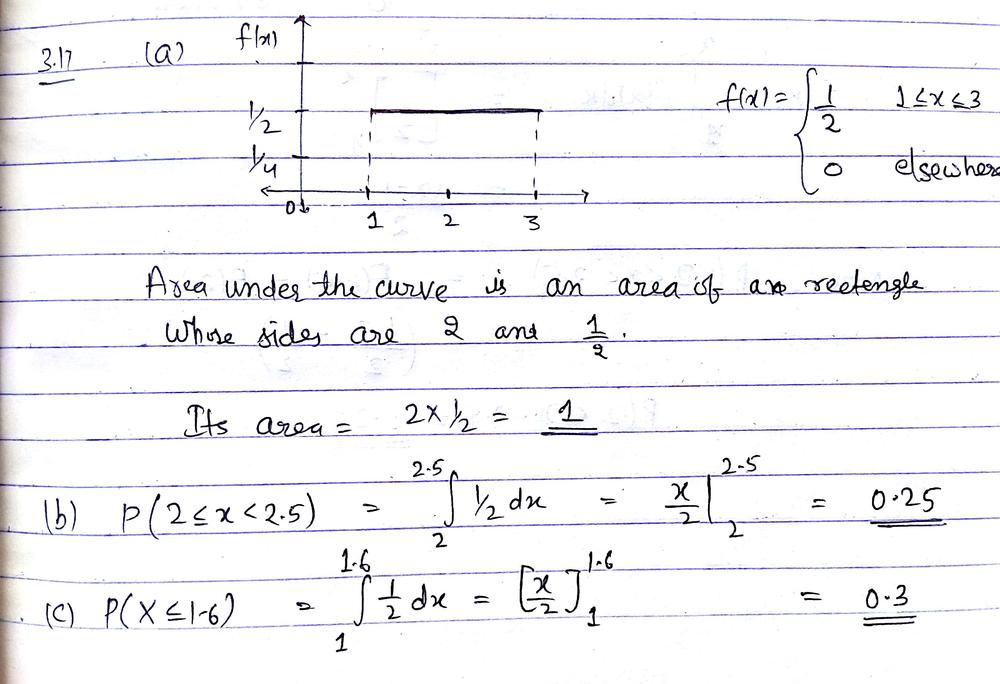 3.17 (a) f(x)
1/2
1/4
0 1 2 3
f(x) = { 1/2 1 ≤ x ≤ 3
0 elsewhere
Area under the curve is an area of an rectengle
whose sides are 2 and 1/2.
Its area = 2 x 1/2 = 1
(b) P(2 ≤ x < 2.5) = ∫_2^2.5 1/2 dx = x/2 |_2^2.5 = 0.25
(c) P(X ≤ 1.6) = ∫_1^1.6 1/2 dx = [x/2]_1^1.6 = 0.3